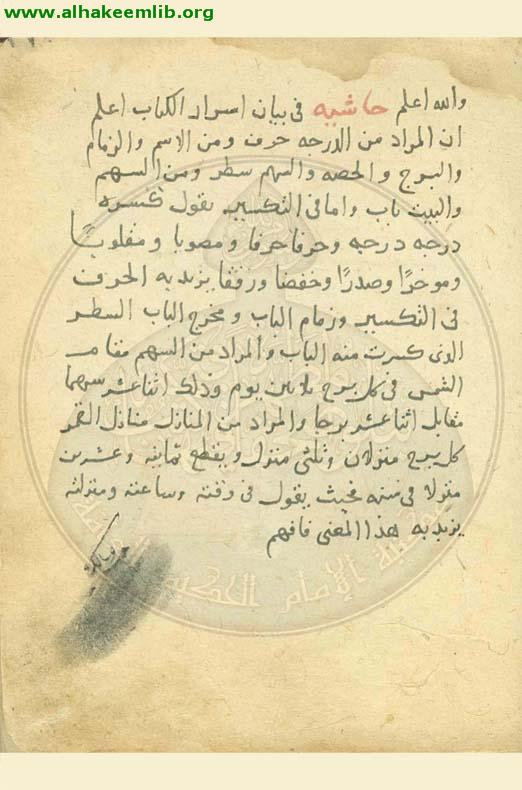 www.alhakeemlib.org
والله اعلم حاشيه فى بيان اسرار الكتاب اعلم
ان المراد من الدرجه حرف ومن الاسم والزمام
والبرج والحصه والسهم سطر ومن السهم
والبيت باب واما فى التكسير يقول كسره
درجه درجه وحرفا حرفا ومصوبا ومقلوبا
وموخرا وصدرا وخفضا ورفعا يريد به الحرف
فى التكسير وزمام الباب ومخرج الباب السطر
الذى كسرت منه الباب والمراد من السهم مقام
الشمس فى كل برج ثلاثين يوم وذلك اثنا عشر سهما
مقابل اثنا عشر برجا والمراد من المنازل منازل القمر
كل برج منزلان وثلثى منزل ويقطع ثمانيه وعشرين
منزلا فى بحيث يقول فى وقته وساعته ومنزلته
يريد به هذا المعنى فافهم